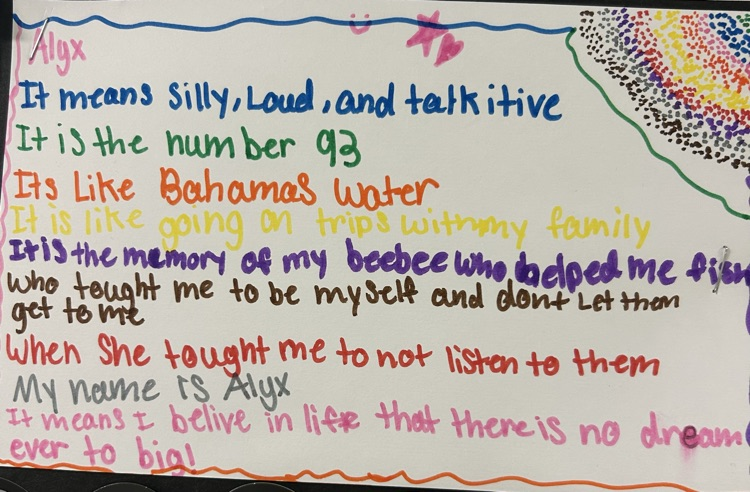 Alyx
It means Silly, Loud, and talkitive
It is the number 93
Its Like Bahamas water
It is like going on trips with my family
It is the memory of my beebee who helped me fish
who tought me to be myself and dont Let them
get to me
When She tought me to not listen to them
My name is Alyx
It means I belive in life that there is no dream
ever to big!